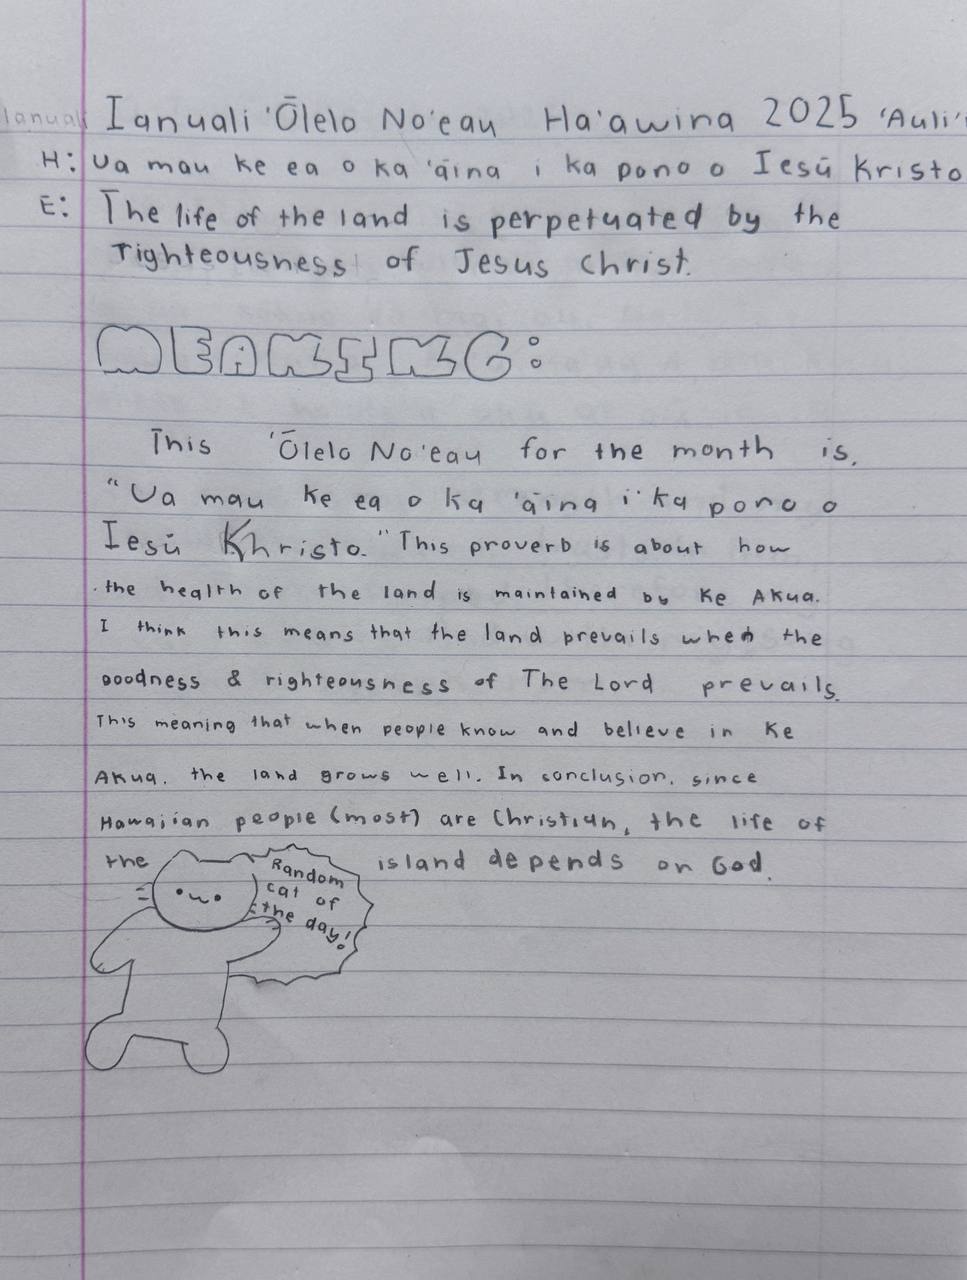 Ianuali Ianuali 'Ōlelo No'eau Ha'awina 2025 'Auli'
H: Ua mau ke ea o ka 'āina i ka pono o Iesū Kristo
E: The life of the land is perpetuated by the
righteousness of Jesus Christ.
MEANING:
This 'Ōlelo No'eau for the month is.
"Ua mau ke ea o ka 'āina i ka pono o
Iesū Khristo." This proverb is about how
the health of the land is maintained by Ke Akua.
I think this means that the land prevails when the
goodness & righteousness of The Lord prevails.
This meaning that when people know and believe in Ke
Akua. the land grows well. In conclusion. since
Hawaiian people (most) are Christian, the life of
the island depends on God.
Random
cat of
the day!